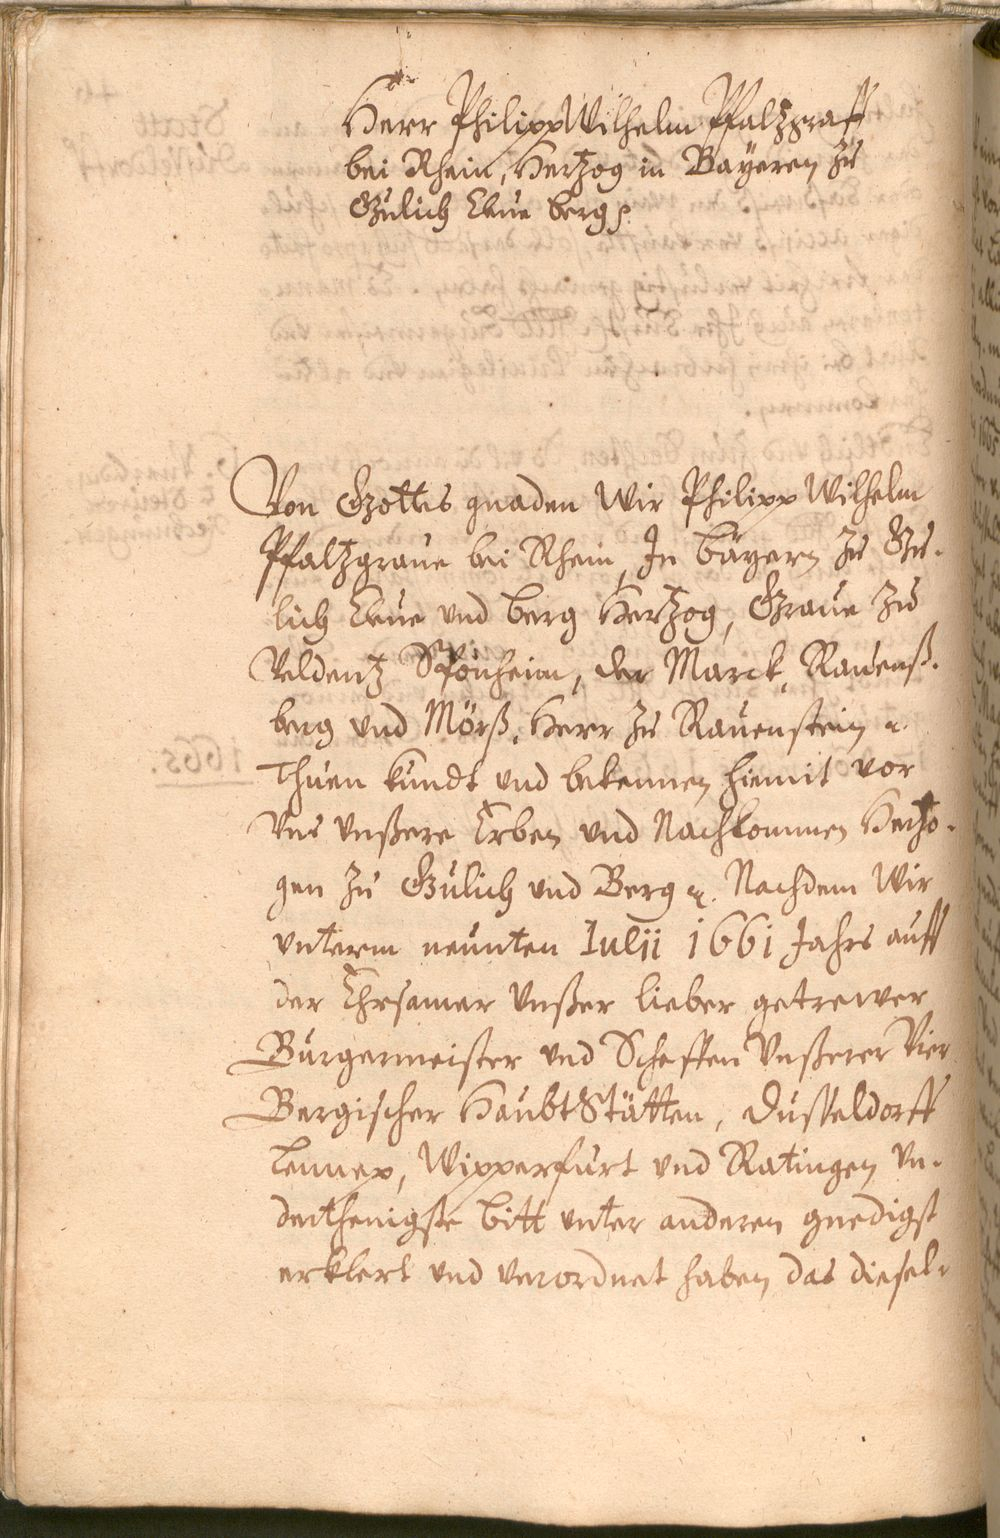 Herr Philipp Wilhelm Pfaltzgraff
bei Rhein, Hertzog in Bayeren zu
Gulich Cleue berg p.
Von Gottes gnaden Wir Philipp Wilhelm
Pfaltzgraue bei Rhein, In bayern zu Gu-
lich Cleue und berg Hertzog, Graue zu
Veldentz Sponheim, der Marck, Rauenß-
berg und Mörß, Herr zu Rauenstein
Thuen kundt und bekennen hiemit vor
Uns Unßere Erben und Nachkommen Hertzo-
gen zu Gulich und Berg. Nachdem Wir
unterm neunten Iulii 1661 Jahrs auff
der Ehrsamer Unßer lieber getrewer
Burgermeister und Scheffen Unßerer Vier
Bergischer HaubtStätten, Dusseldorff
Lennep, Wipperfurt und Ratingen un-
derthenigste bitt unter anderen gnedigst
erklert und verordnet haben das diesel-